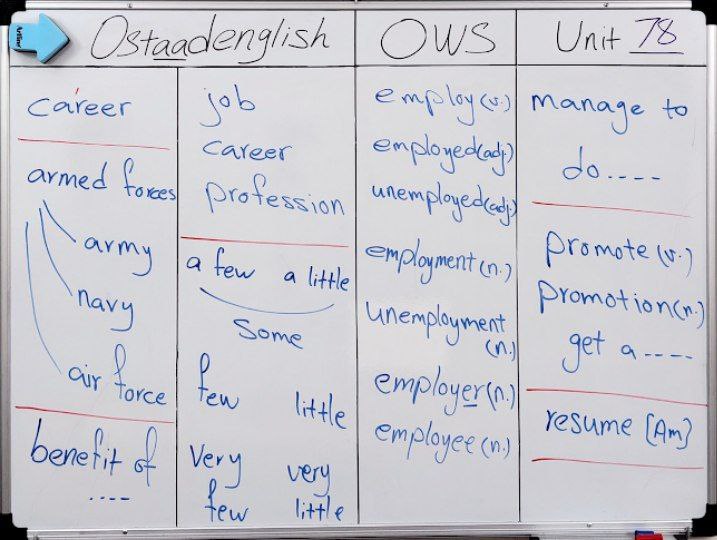 Ostaadenglish
OWS
Unit 78
career
armed forces
army
navy
air force
benefit of
....
job
career
profession
a few a little
Some
few little
Very very
few little
employ (v.)
employed (adj.)
unemployed (adj.)
employment (n.)
unemployment
(n.)
employer (n.)
employee (n.)
manage to
do....
promote (v.)
promotion (n.)
get a ----
resume [Am]